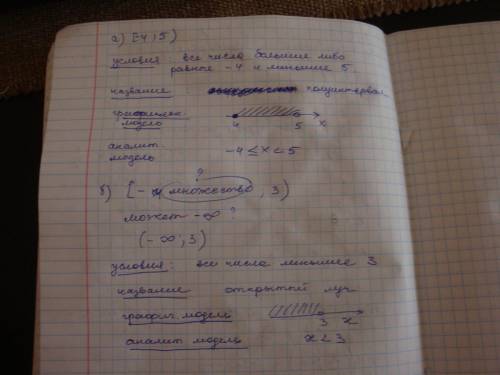 а) [-4 ; 5)
условия все числа больше либо
равные -4 и меньшие 5.
название полуинтервал
графическ.
модель
4 5 x
аналит
модель -4 ≤ x < 5
?
б) [- множество, 3)
может -∞ ?
(-∞; 3)
условия: все числа меньшие 3
название открытый луч
график. модель
3 x
аналит модель x < 3